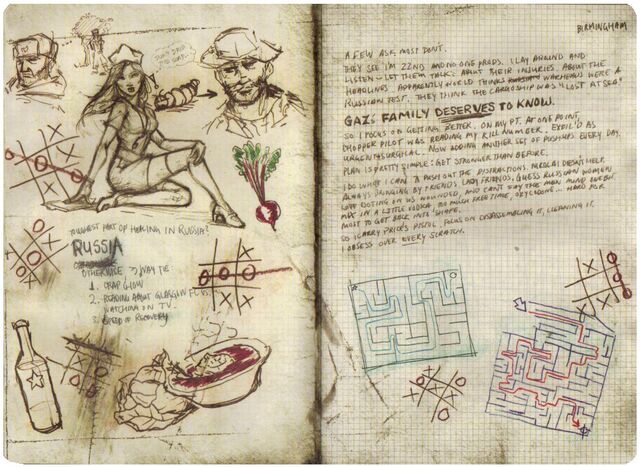 TOUGHEST PART OF HEALING IN RUSSIA?
RUSSIA
OTHERWISE 3-WAY TIE
1. CRAP CHOW
2. READING ABOUT GLASGOW FC VS.
WATCHING ON TV
3. SPEED OF RECOVERY
BIRMINGHAM
A FEW ASK, MOST DON'T.
THEY SEE I'M 22ND AND NO ONE PRODS. I LAY AROUND AND
LISTEN - LET THEM TALK: ABOUT THEIR INJURIES. ABOUT THE
HEADLINES. APPARENTLY WORLD THINKS WARHEADS WERE A
RUSSIAN TEST. THEY THINK THE CARGO SHIP WAS "LOST AT SEA"
GAZ'S FAMILY DESERVES TO KNOW.
SO I FOCUS ON GETTING BETTER. ON MY PT. AT ONE POINT,
CHOPPER PILOT WAS READING MY KILL NUMBER. EXFIL'D AS
URGENT SURGICAL. NOW ADDING ANOTHER SET OF PUSHUPS EVERY DAY.
PLAN IS PRETTY SIMPLE: GET STRONGER THAN BEFORE.
I DO WHAT I CAN TO PUSH OUT THE DISTRACTIONS. NIKOLAI DOESN'T HELP.
ALWAYS BRINGING BY FRIENDS. LADY FRIENDS. GUESS RUSSIAN WOMEN
LOVE DOTING ON US WOUNDED, AND CAN'T SAY THE MEN MIND OVERLY.
MIX IN A LITTLE VODKA, TOO MUCH FREE TIME, OXYCODONE... HARD FOR
MOST TO GET BACK INTO SHAPE.
SO I CARRY PRICE'S PISTOL. FOCUS ON DISASSEMBLING IT, CLEANING IT.
I OBSESS OVER EVERY SCRATCH.